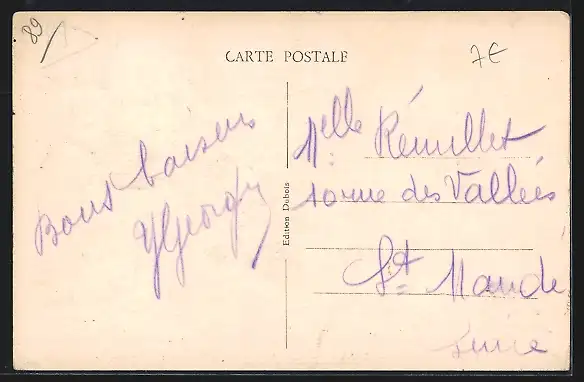 89
CARTE POSTALE
7€
Bons baisers
Edition Dubois
Melle Rémillet
10 rue des Vallées
St Mandé
Seine